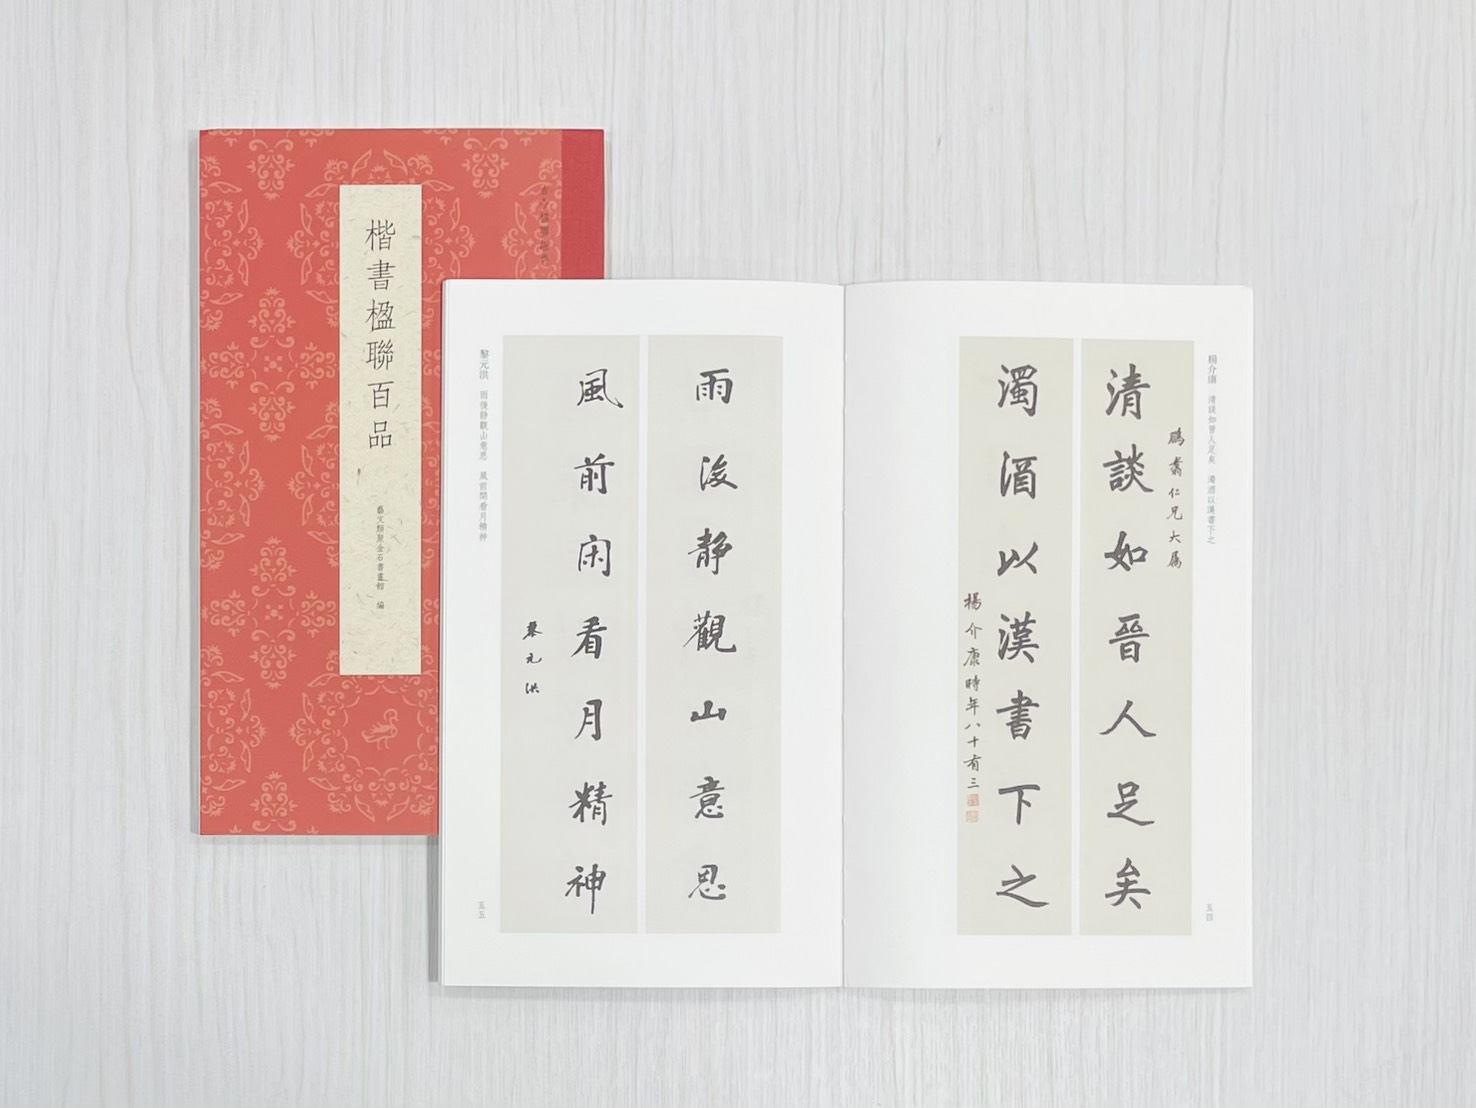 楷書楹聯百品
藝文類聚金石書畫館 編
楊介康 清談如晉人足矣 濁酒以漢書下之
鵬翥仁兄大属
清談如晉人足矣
濁酒以漢書下之
楊介康時年八十有三
五四
雨後静觀山意思
風前閑看月精神
黎元洪
黎元洪 雨後静觀山意思 風前閑看月精神
五五